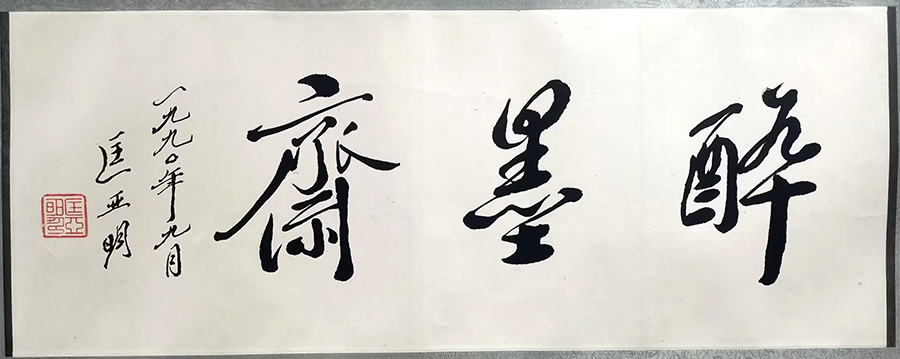 醉墨齋
一九九〇年九月
匡亚明
匡亚明印